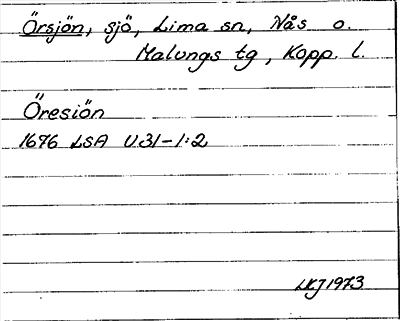 Örsjön, sjö, Lima sn, Nås o.
Malungs tg, Kopp. l.
Öresiön
1676 LSA U31-1:2
LKJ 1973